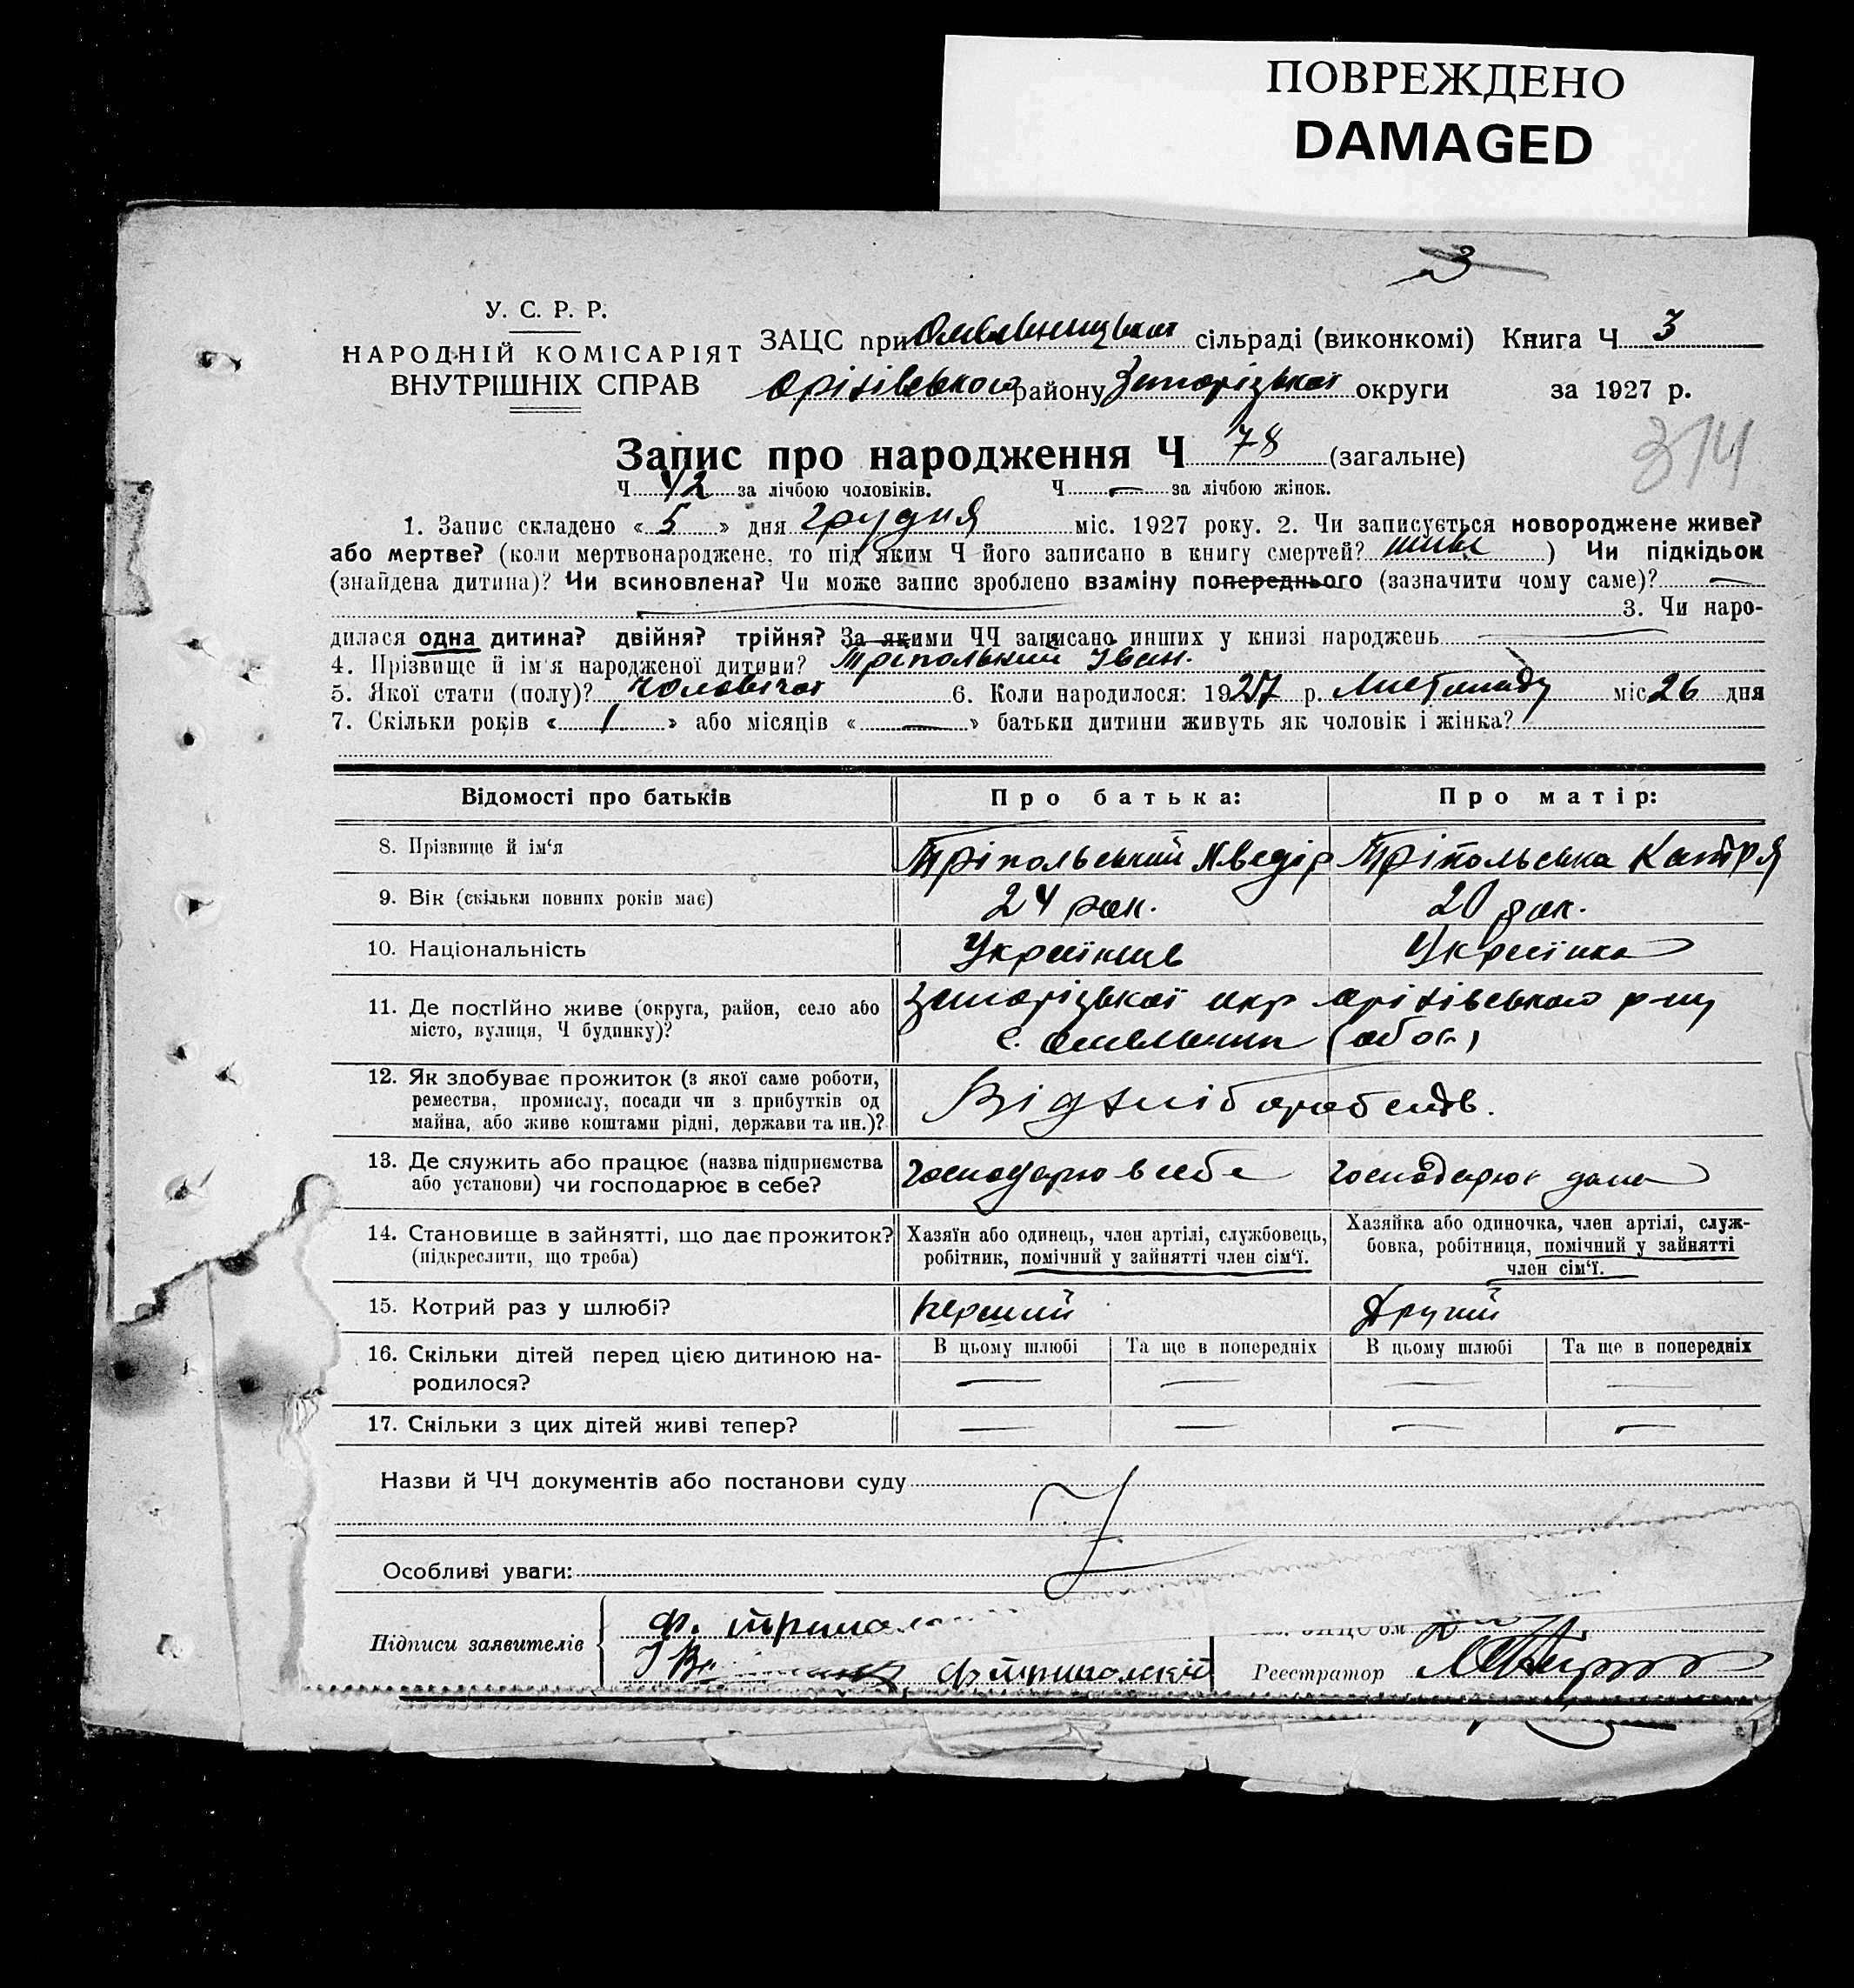 ПОВРЕЖДЕНО
DAMAGED
3
У. С. Р. Р.
НАРОДНІЙ КОМІСАРІЯТ
ВНУТРІШНІХ СПРАВ
ЗАЦС при Омельницької сільраді (виконкомі) Книга Ч 3
Оріхівського району Запорізької округи за 1927 р.
314
Запис про народження Ч 78 (загальне)
Ч 42 за лічбою чоловіків. Ч — за лічбою жінок.
1. Запис складено « 5 » дня грудня міс. 1927 року. 2. Чи записується новороджене живе?
або мертве? (коли мертвонароджене, то під яким Ч його записано в книгу смертей? живе ) Чи підкідьок
(знайдена дитина)? Чи всиновлена? Чи може запис зроблено взаміну попереднього (зазначити чому саме)? —
3. Чи наро-
дилася одна дитина? двійня? трійня? За якими ЧЧ записано инших у книзі народжень
4. Прізвище й ім'я народженої дитини? Тріполький Іван.
5. Якої стати (полу)? чоловічої 6. Коли народилося: 1927 р. Листопаду міс 26 дня
7. Скільки років « 1 » або місяців « — » батьки дитини живуть як чоловік і жінка?
Відомості про батьків Про батька: Про матір:
8. Прізвище й ім'я Тріпольський Тріпольська Катря
9. Вік (скільки повних років має) 24 рок. 20 рок.
10. Національність Українець Українка
11. Де постійно живе (округа, район, село або
місто, вулиця, Ч будинку)?
Запорізької окр Оріхівського р-ну
с. Омельник (обоє)
12. Як здобуває прожиток (з якої саме роботи,
ремества, промислу, посади чи з прибутків од
майна, або живе коштами рідні, держави та ин.)?
Від хліборобств.
13. Де служить або працює (назва підприємства
або установи) чи господарює в себе?
господарю в себе господарює дома
14. Становище в зайнятті, що дає прожиток?
(підкреслити, що треба)
Хазяїн або одинець, член артілі, службовець,
робітник, помічний у зайнятті член сім'ї.
Хазяйка або одиночка, член артілі, служ-
бовка, робітниця, помічний у зайнятті
член сім'ї.
15. Котрий раз у шлюбі? перший Другий
16. Скільки дітей перед цією дитиною на-
родилося?
В цьому шлюбі Та ще в попередніх В цьому шлюбі Та ще в попередніх
— — — —
17. Скільки з цих дітей живі тепер? — — — —
Назви й ЧЧ документів або постанови суду
Особливі уваги:
Підписи заявителів
Ф. Трипол
Ф Триполский
Реєстратор